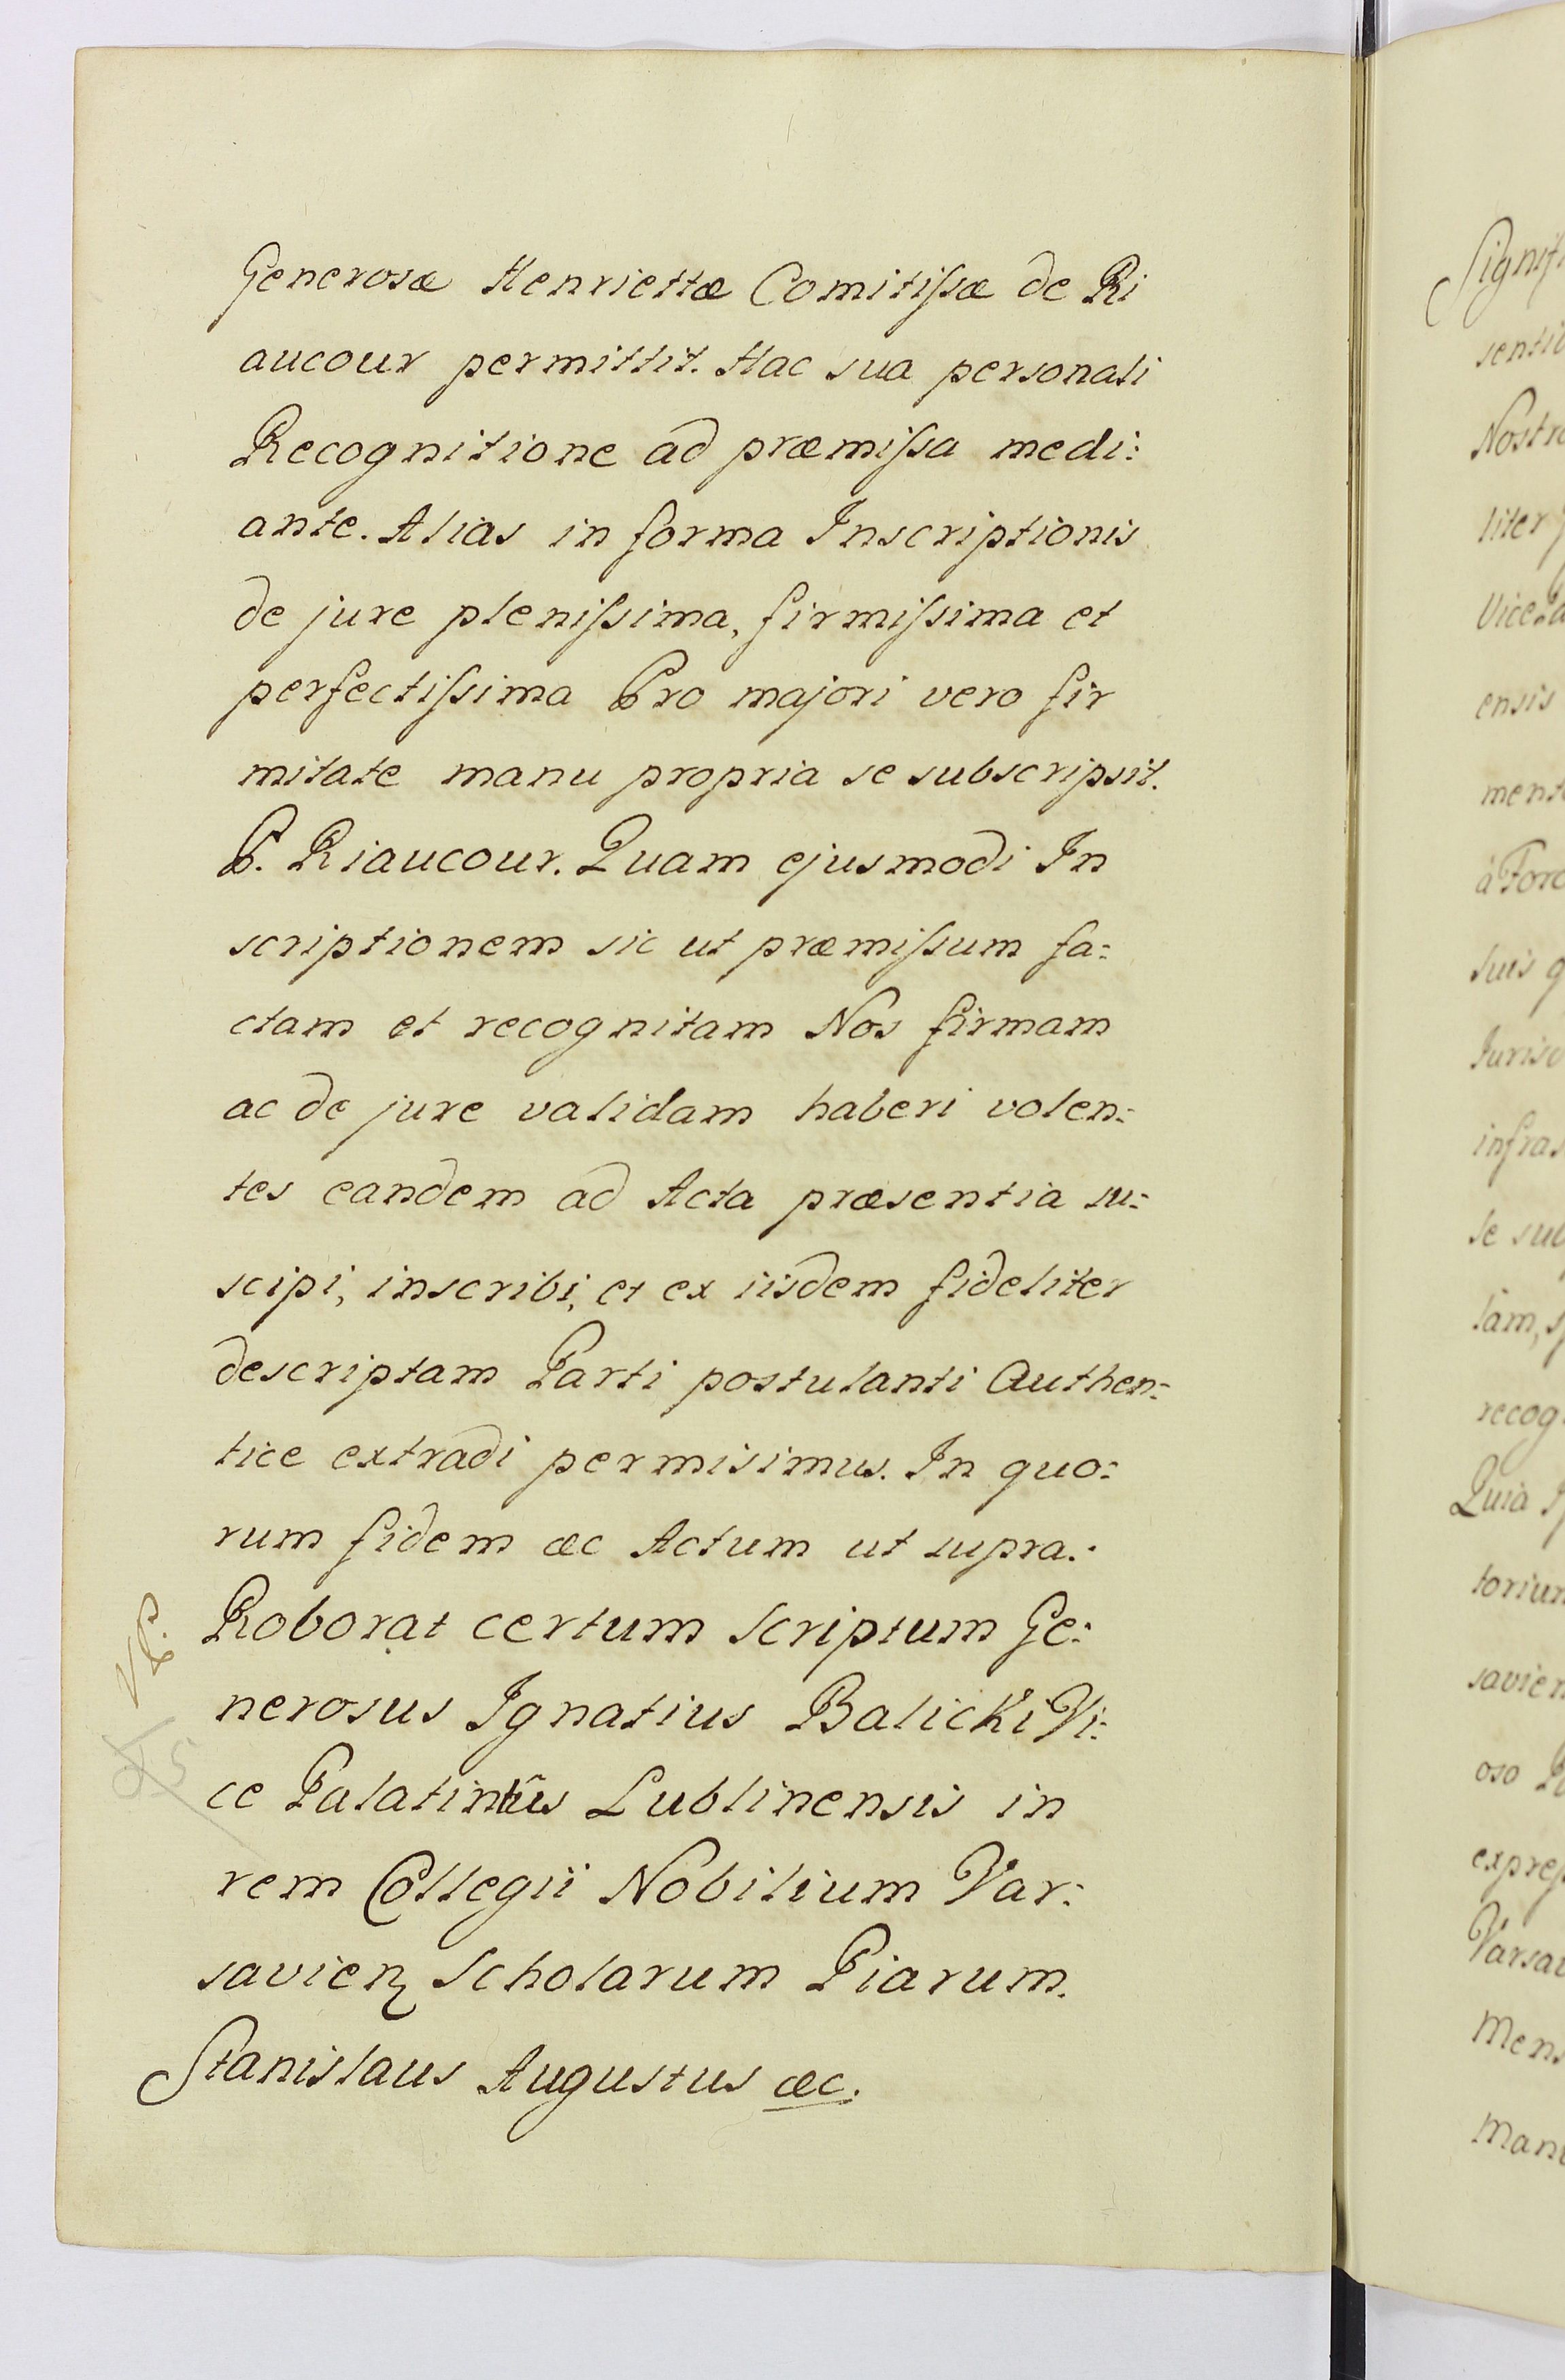 Generosæ Henriettæ Comitiſsæ de Ri
aucour permittit. Hac sua personali
Recognitione ad præmiſsa medi:
ante. Alias in forma Inscriptionis
de jure pleniſsima, firmiſsima et
perfectiſsima Pro majori vero fir
mitate manu propria se subscripsit.
P. Riaucour. Quam ejusmodi In
scriptionem sic ut præmiſsum fa:
ctam et recognitam Nos firmam
ac de jure validam haberi volen:
tes eandem ad Acta præsentia su:
scipi, inscribi, et ex iisdem fideliter
descriptam Parti postulanti Authen:
tice extradi permisimus. In quo:
rum fidem æc Actum ut supra.
Roborat certum scriptum Ge:
nerosus Ignatius Balicki Vi:
ce Palatinus Lublinensis in
rem Collegii Nobilium Var:
savien Scholarum Piarum.
Stanislaus Augustus æc.
sentii
Nostr
liter
ensis
ment
suis q
infras
se sub
recog
Quia
toriun
savien
oso
Varsav
Mens
Manu